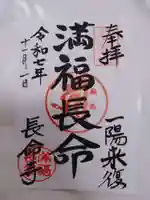 奉拝
一陽来復
満福長命
令和七年
十一月一日
長命寺